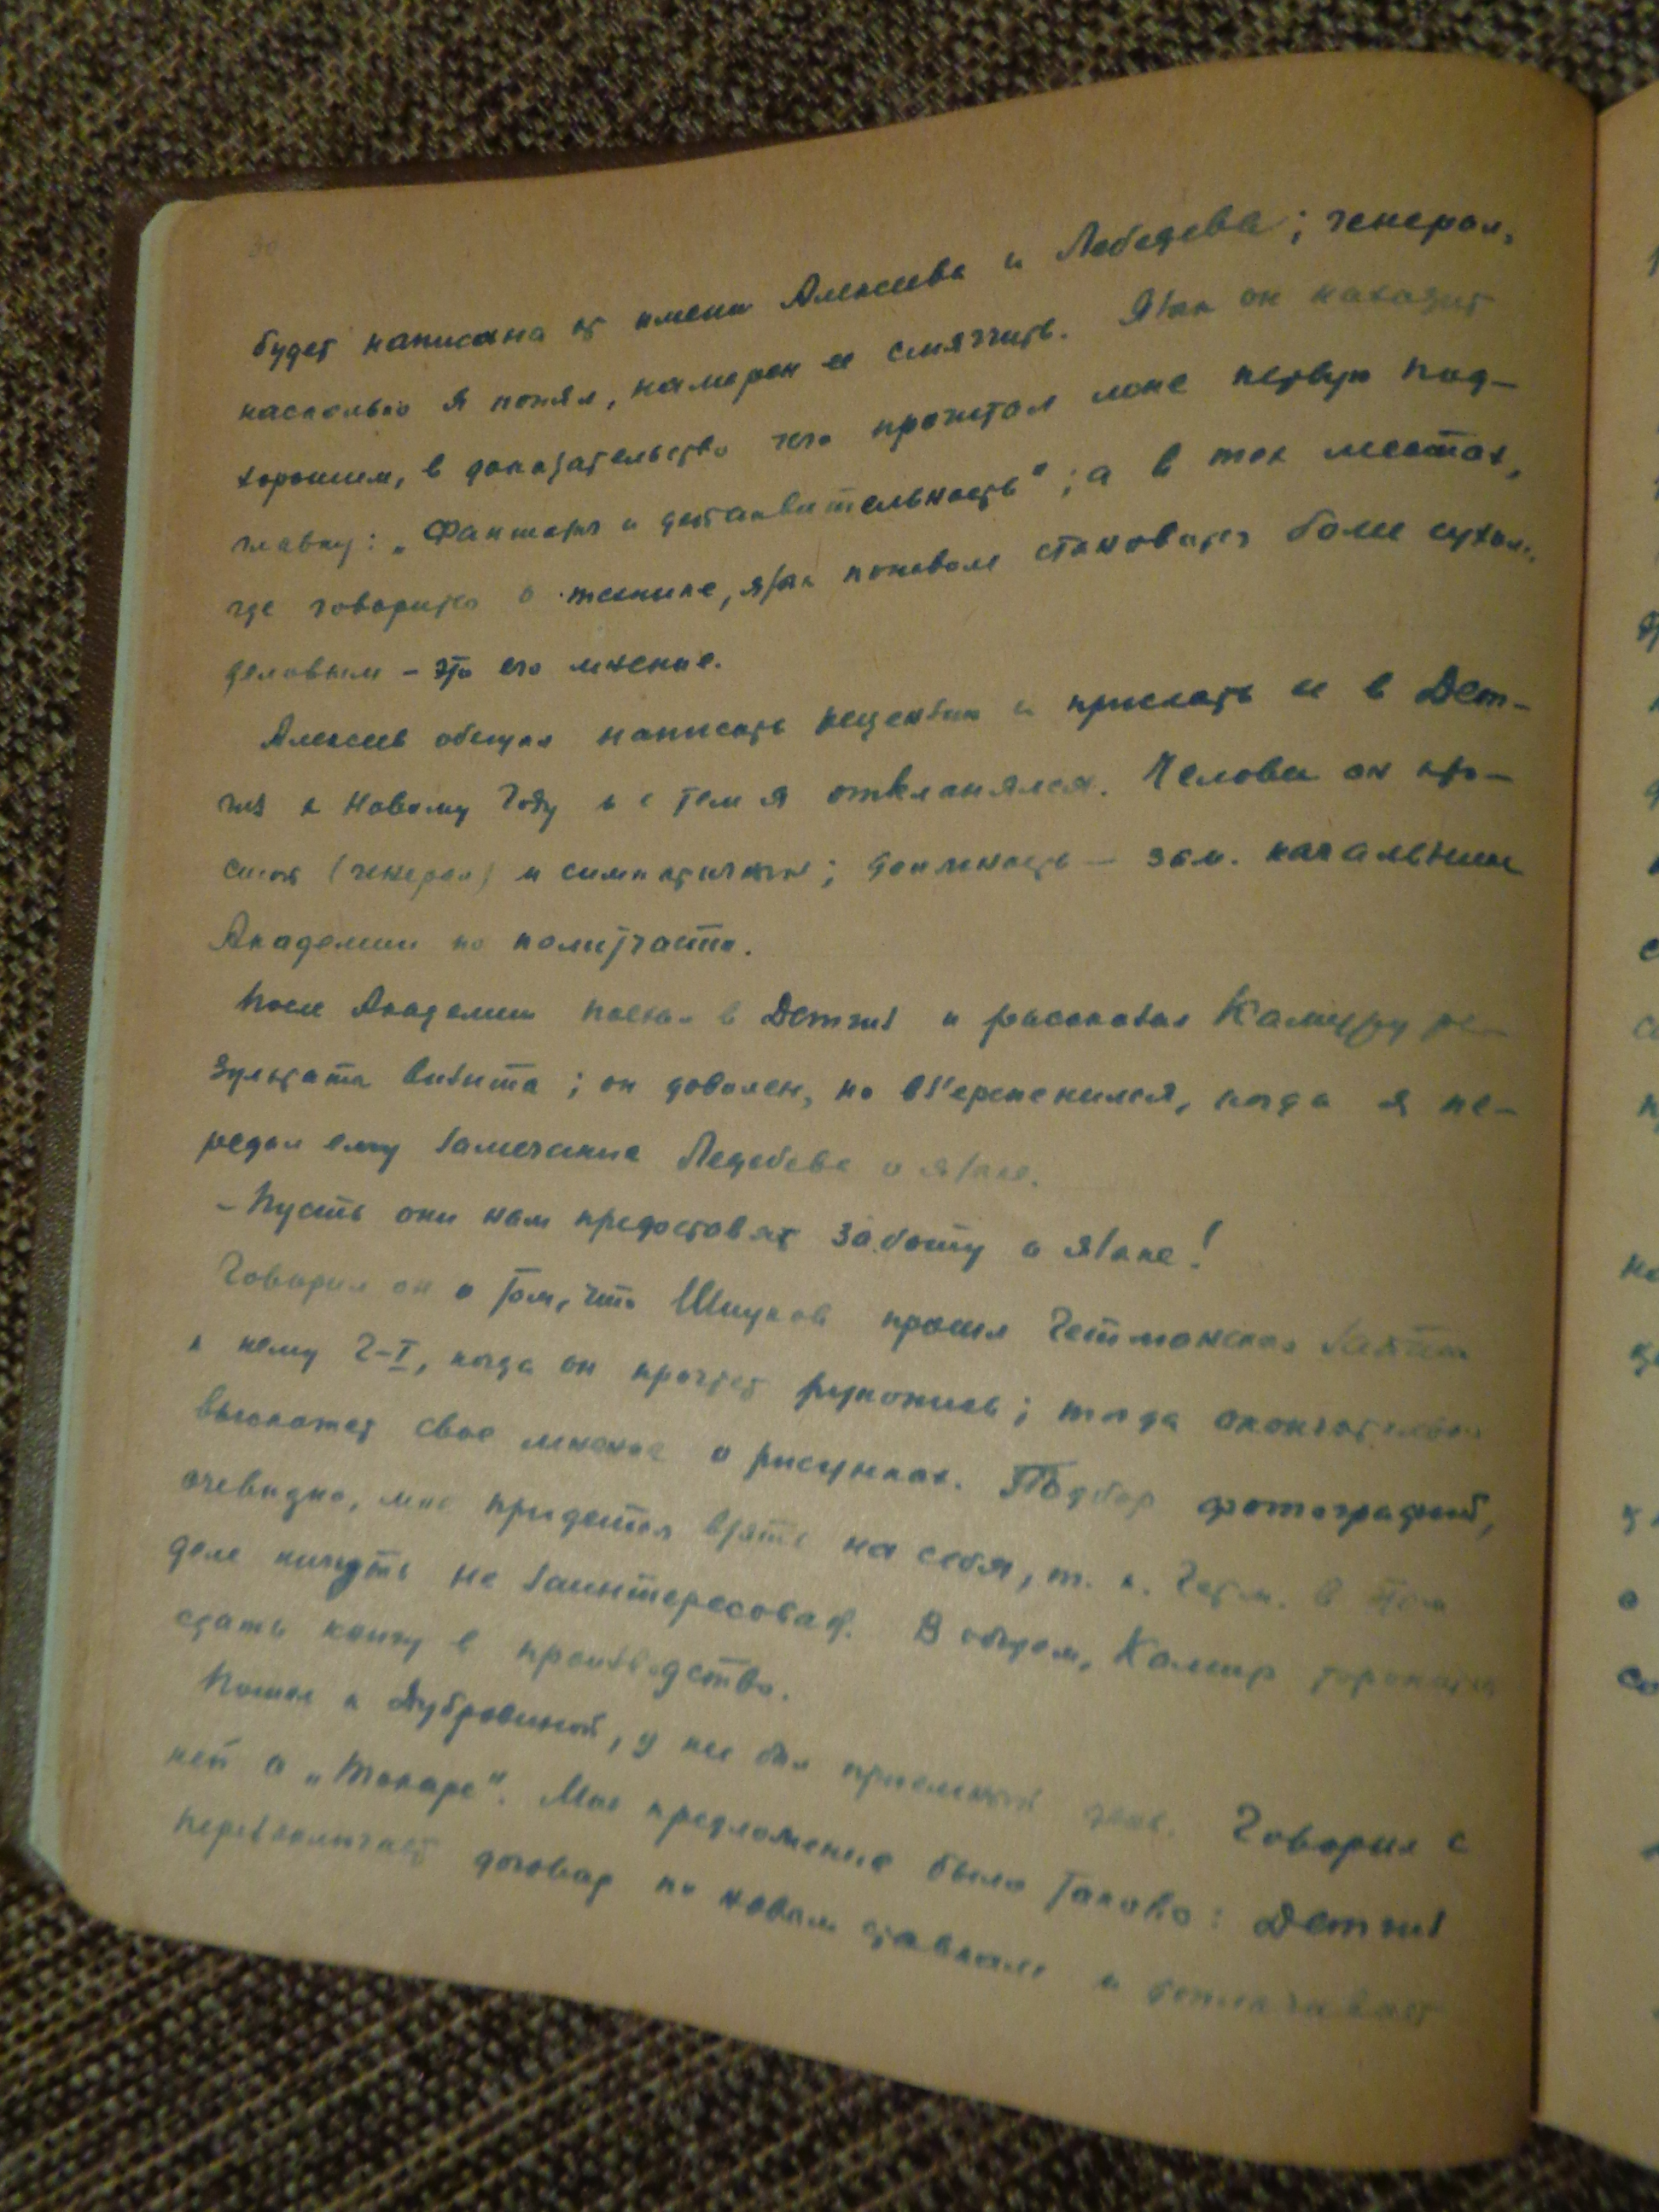 30
будет написана от имени Алексеева и Лебедева; генерал,
насколько я понял, намерен ее смягчить. Язык он находит
хорошим, в доказательство чего прочитал мне первую под-
главку: „Фантазия и действительность"; а в тех местах,
где говорится о технике, язык поневоле становится более сухим,
деловым – это его мнение.
Алексеев обещал написать рецензию и прислать ее в Дет-
гиз к Новому Году и с тем я откланялся. Человек он про-
стой (генерал) и симпатичный; должность – зам. начальника
Академии по политчасти.
После Академии поехал в Детгиз и рассказал Камиру ре-
зультаты визита; он доволен, но взъерепенился, когда я пе-
редал ему замечание Ледебева о языке.
– Пусть они нам предоставят заботу о языке!
Говорил он о том, что Шмуков просил Гетманского зайти
к нему 2-I, когда он прочтет рукопись; тогда окончательно
выскажет свое мнение о рисунках. Подбор фотографий,
очевидно, мне придется взять на себя, т. к. Гетм. в этом
деле ничуть не заинтересован. В общем, Камир торопится
сдать книгу в производство.
Пошел к Дубровиной, у нее был приемный день. Говорил с
ней о „Токаре". Мое предложение было таково: Детгиз
перезаключает договор по новым ставкам и